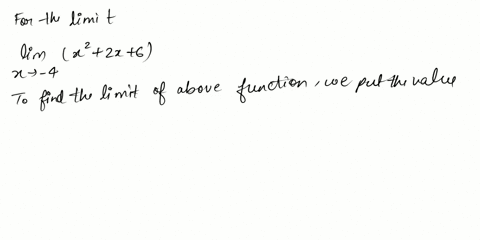 For the limit
lim (x²+2x+6)
x→-4
To find the limit of above function, we put the value